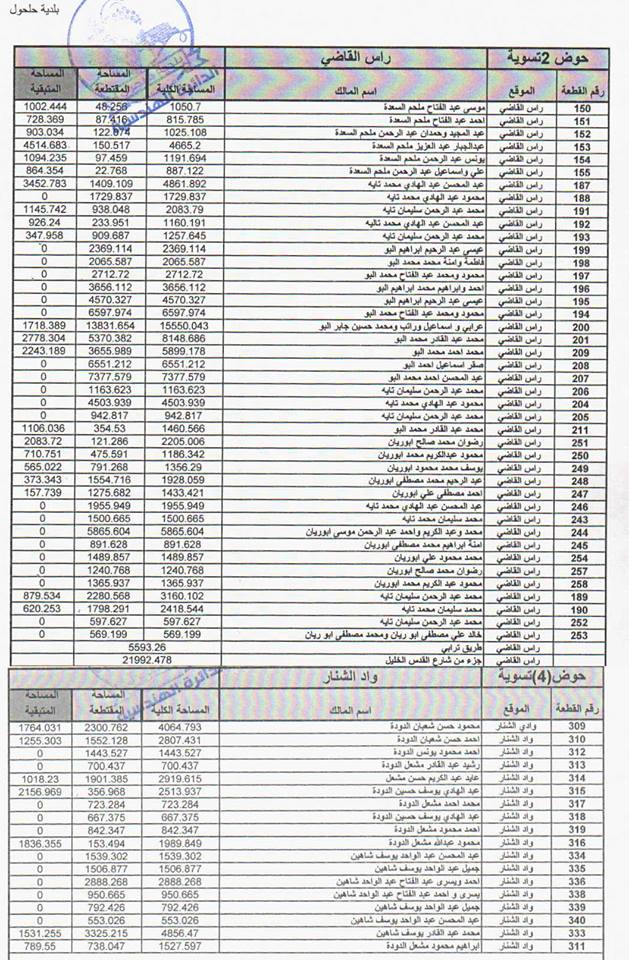 بلدية حلحول
حوض 2تسوية راس القاضي المساحة المقتطعة المساحة المتبقية
رقم القطعة الموقع اسم المالك المساحة الكلية
150 راس القاضي موسى عبد الفتاح ملحم السعدة 1050.7 48.256 1002.444
151 راس القاضي احمد عبد الفتاح ملحم السعدة 815.785 87.416 728.369
152 راس القاضي عبد المجيد وحمدان عبد الرحمن ملحم السعدة 1025.108 122.074 903.034
153 راس القاضي عبدالجبار عبد العزيز ملحم السعدة 4665.2 150.517 4514.683
154 راس القاضي يونس عبد الرحمن ملحم السعدة 1191.694 97.459 1094.235
155 راس القاضي علي واسماعيل عبد الرحمن ملحم السعدة 887.122 22.768 864.354
187 راس القاضي عبد المحسن عبد الهادي محمد تايه 4861.892 1409.109 3452.783
188 راس القاضي محمود عبد الهادي محمد تايه 1729.837 1729.837 0
191 راس القاضي محمد عبد الرحمن سليمان تايه 2083.79 938.048 1145.742
192 راس القاضي عبد المحسن عبد الهادي محمد تاليه 1160.191 233.951 926.24
193 راس القاضي محمد عبد الرحمن سليمان تايه 1257.645 909.687 347.958
199 راس القاضي عيسى عبد الرحيم ابراهيم البو 2369.114 2369.114 0
198 راس القاضي فاطمة وامنة محمد محمد البو 2065.587 2065.587 0
197 راس القاضي محمود ومحمد عبد الفتاح محمد البو 2712.72 2712.72 0
196 راس القاضي احمد وابراهيم محمد ابراهيم البو 3656.112 3656.112 0
195 راس القاضي عيسى عبد الرحيم ابراهيم البو 4570.327 4570.327 0
194 راس القاضي محمود ومحمد عبد الفتاح محمد البو 6597.974 6597.974 0
200 راس القاضي عرابي و اسماعيل وراتب ومحمد حسين جابر البو 15550.043 13831.654 1718.389
201 راس القاضي محمد عبد القادر محمد البو 8148.686 5370.382 2778.304
209 راس القاضي محمد احمد محمد البو 5899.178 3655.989 2243.189
208 راس القاضي صقر اسماعيل احمد البو 6551.212 6551.212 0
207 راس القاضي عبد المحسن احمد محمد البو 7377.579 7377.579 0
206 راس القاضي محمد عبد الرحمن سليمان تايه 1163.623 1163.623 0
204 راس القاضي محمود عبد الهادي محمد تايه 4503.939 4503.939 0
205 راس القاضي محمد عبد الرحمن سليمان تايه 942.817 942.817 0
211 راس القاضي محمد عبد القادر محمد البو 1460.566 354.53 1106.036
251 راس القاضي رضوان محمد صالح ابوريان 2205.006 121.286 2083.72
250 راس القاضي محمود عبدالكريم محمد ابوريان 1186.342 475.591 710.751
249 راس القاضي يوسف محمد محمود ابوريان 1356.29 791.268 565.022
248 راس القاضي عبد الرحيم محمد مصطفى ابوريان 1928.059 1554.716 373.343
247 راس القاضي احمد مصطفى علي ابوريان 1433.421 1275.682 157.739
246 راس القاضي عبد المحسن عبد الهادي محمد تايه 1955.949 1955.949 0
243 راس القاضي محمد سليمان محمد تايه 1500.665 1500.665 0
244 راس القاضي محمد وعبد الكريم واحمد عبد الرحمن موسى ابوريان 5865.604 5865.604 0
245 راس القاضي امنة ابراهيم محمد مصطفى ابوريان 891.628 891.628 0
254 راس القاضي محمد محمود علي ابوريان 1489.857 1489.857 0
257 راس القاضي رضوان محمد صالح ابوريان 1240.768 1240.768 0
258 راس القاضي محمود عبد الكريم محمد ابوريان 1365.937 1365.937 0
189 راس القاضي محمد عبد الرحمن سليمان تايه 3160.102 2280.568 879.534
190 راس القاضي محمد سليمان محمد تايه 2418.544 1798.291 620.253
252 راس القاضي محمد عبد الرحمن سليمان تايه 597.627 597.627 0
253 راس القاضي خالد علي مصطفى ابو ريان ومحمد مصطفى ابو ريان 569.199 569.199 0
راس القاضي طريق ترابي 5593.26
راس القاضي جزء من شارع القدس الخليل 21992.478
حوض(4)تسوية واد الشنار المساحة المقتطعة المساحة المتبقية
رقم القطعة الموقع اسم المالك المساحة الكلية
309 وادي الشنار محمود حسن شعبان الدودة 4064.793 2300.762 1764.031
310 واد الشنار احمد حسن شعبان الدودة 2807.431 1552.128 1255.303
312 واد الشنار احمد محمود يونس الدودة 1443.527 1443.527 0
313 واد الشنار رشيد عبد القادر مشعل الدودة 700.437 700.437 0
314 واد الشنار عايد عبد الكريم حسن مشعل 2919.615 1901.385 1018.23
315 واد الشنار عبد الهادي يوسف حسين الدودة 2513.937 356.968 2156.969
317 واد الشنار محمد احمد مشعل الدودة 723.284 723.284 0
318 واد الشنار عبد الهادي يوسف حسين الدودة 667.375 667.375 0
319 واد الشنار احمد محمود مشعل الدودة 842.347 842.347 0
316 واد الشنار محمود عبدالله مشعل الدودة 1989.849 153.494 1836.355
334 واد الشنار عبد المحسن عبد الواحد يوسف شاهين 1539.302 1539.302 0
335 واد الشنار جميل عبد الواحد يوسف شاهين 1506.877 1506.877 0
336 واد الشنار احمد ويسرى عبد الفتاح عبد الواحد شاهين 2888.268 2888.268 0
338 واد الشنار يسرى و احمد عبد الفتاح عبد الواحد شاهين 950.665 950.665 0
339 واد الشنار جميل عبد الواحد يوسف شاهين 792.426 792.426 0
340 واد الشنار عبد المحسن عبد الواحد يوسف شاهين 553.026 553.026 0
333 واد الشنار محمد عبد القادر يوسف شاهين 4856.47 3325.215 1531.255
311 واد الشنار ابراهيم محمود مشعل الدودة 1527.597 738.047 789.55